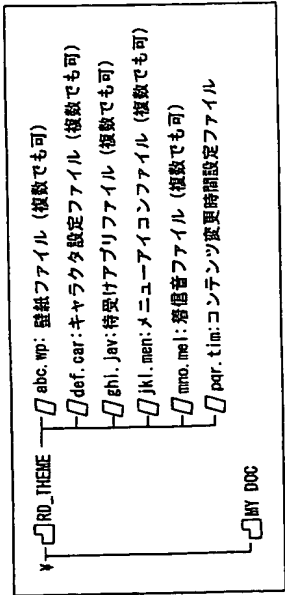 ¥
RD_THEME
abc.wp: 壁紙ファイル (複数でも可)
def.car:キャラクタ設定ファイル (複数でも可)
ghi.jav:待受けアプリファイル (複数でも可)
jkl.men:メニューアイコンファイル (複数でも可)
mno.mel:着信音ファイル (複数でも可)
pqr.tim:コンテンツ変更時間設定ファイル
MY DOC